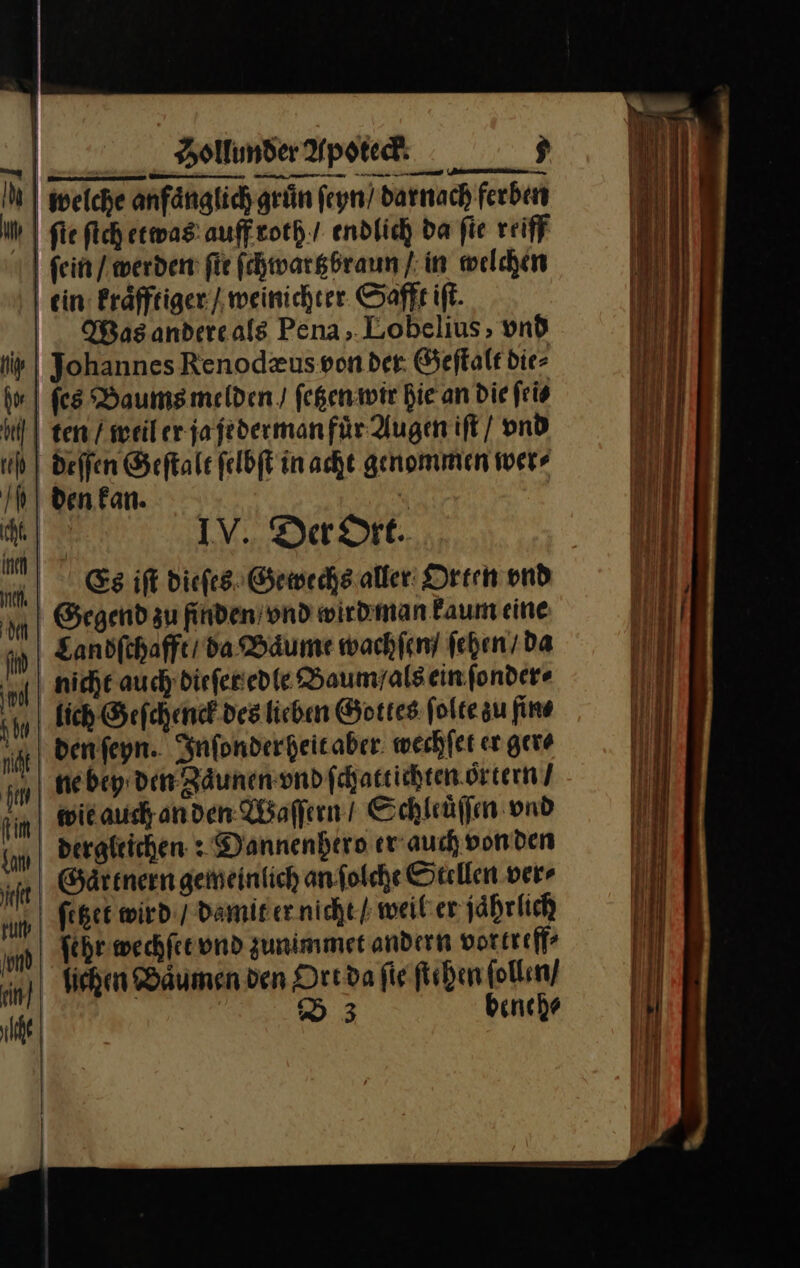 Hollunder Apoteck. 9
welche anfånglich grůn ſeyn / darnach ferben
ſie ſich etwas auff roth / endlich da ſie reiff
ſein / werden ſie ſchwartzbraun / in welchen
ein kråfftiger / weinichter Safft iſt.
Was andere als Pena, Lobelius, vnd
Johannes Renodæus von der Geſtalt die⸗
ſes Baums melden / ſetzen wir hie an die ſei⸗
ten / weil er ja jederman fůr Augen iſt / vnd
deſſen Geſtalt ſelbſt in acht genommen wer⸗
den kan.
IV. Der Ort.
Es iſt dieſes Gewechs aller Orten vnd
Gegend zu finden / vnd wird man kaum eine
Landſchafft / da Båume wachſen / ſehen / da
nicht auch dieſer edle Baum / als ein ſonder⸗
lich Geſchenck des lieben Gottes ſolte zu fin⸗
den ſeyn. Inſonderheit aber wechſet er ger⸗
ne bey den Zåunen vnd ſchattichten örtern /
wie auch an den Waſſern / Schleůſſen vnd
dergleichen : Dannenhero er auch von den
Gårtnern gemeinlich an ſolche Stellen ver⸗
ſetzet wird / damit er nicht / weil er jåhrlich
ſehr wechſet vnd zunimmet andern vortreff⸗
lichen Båumen den Ort da ſie ſtehen ſollen /
B 3 beneh⸗